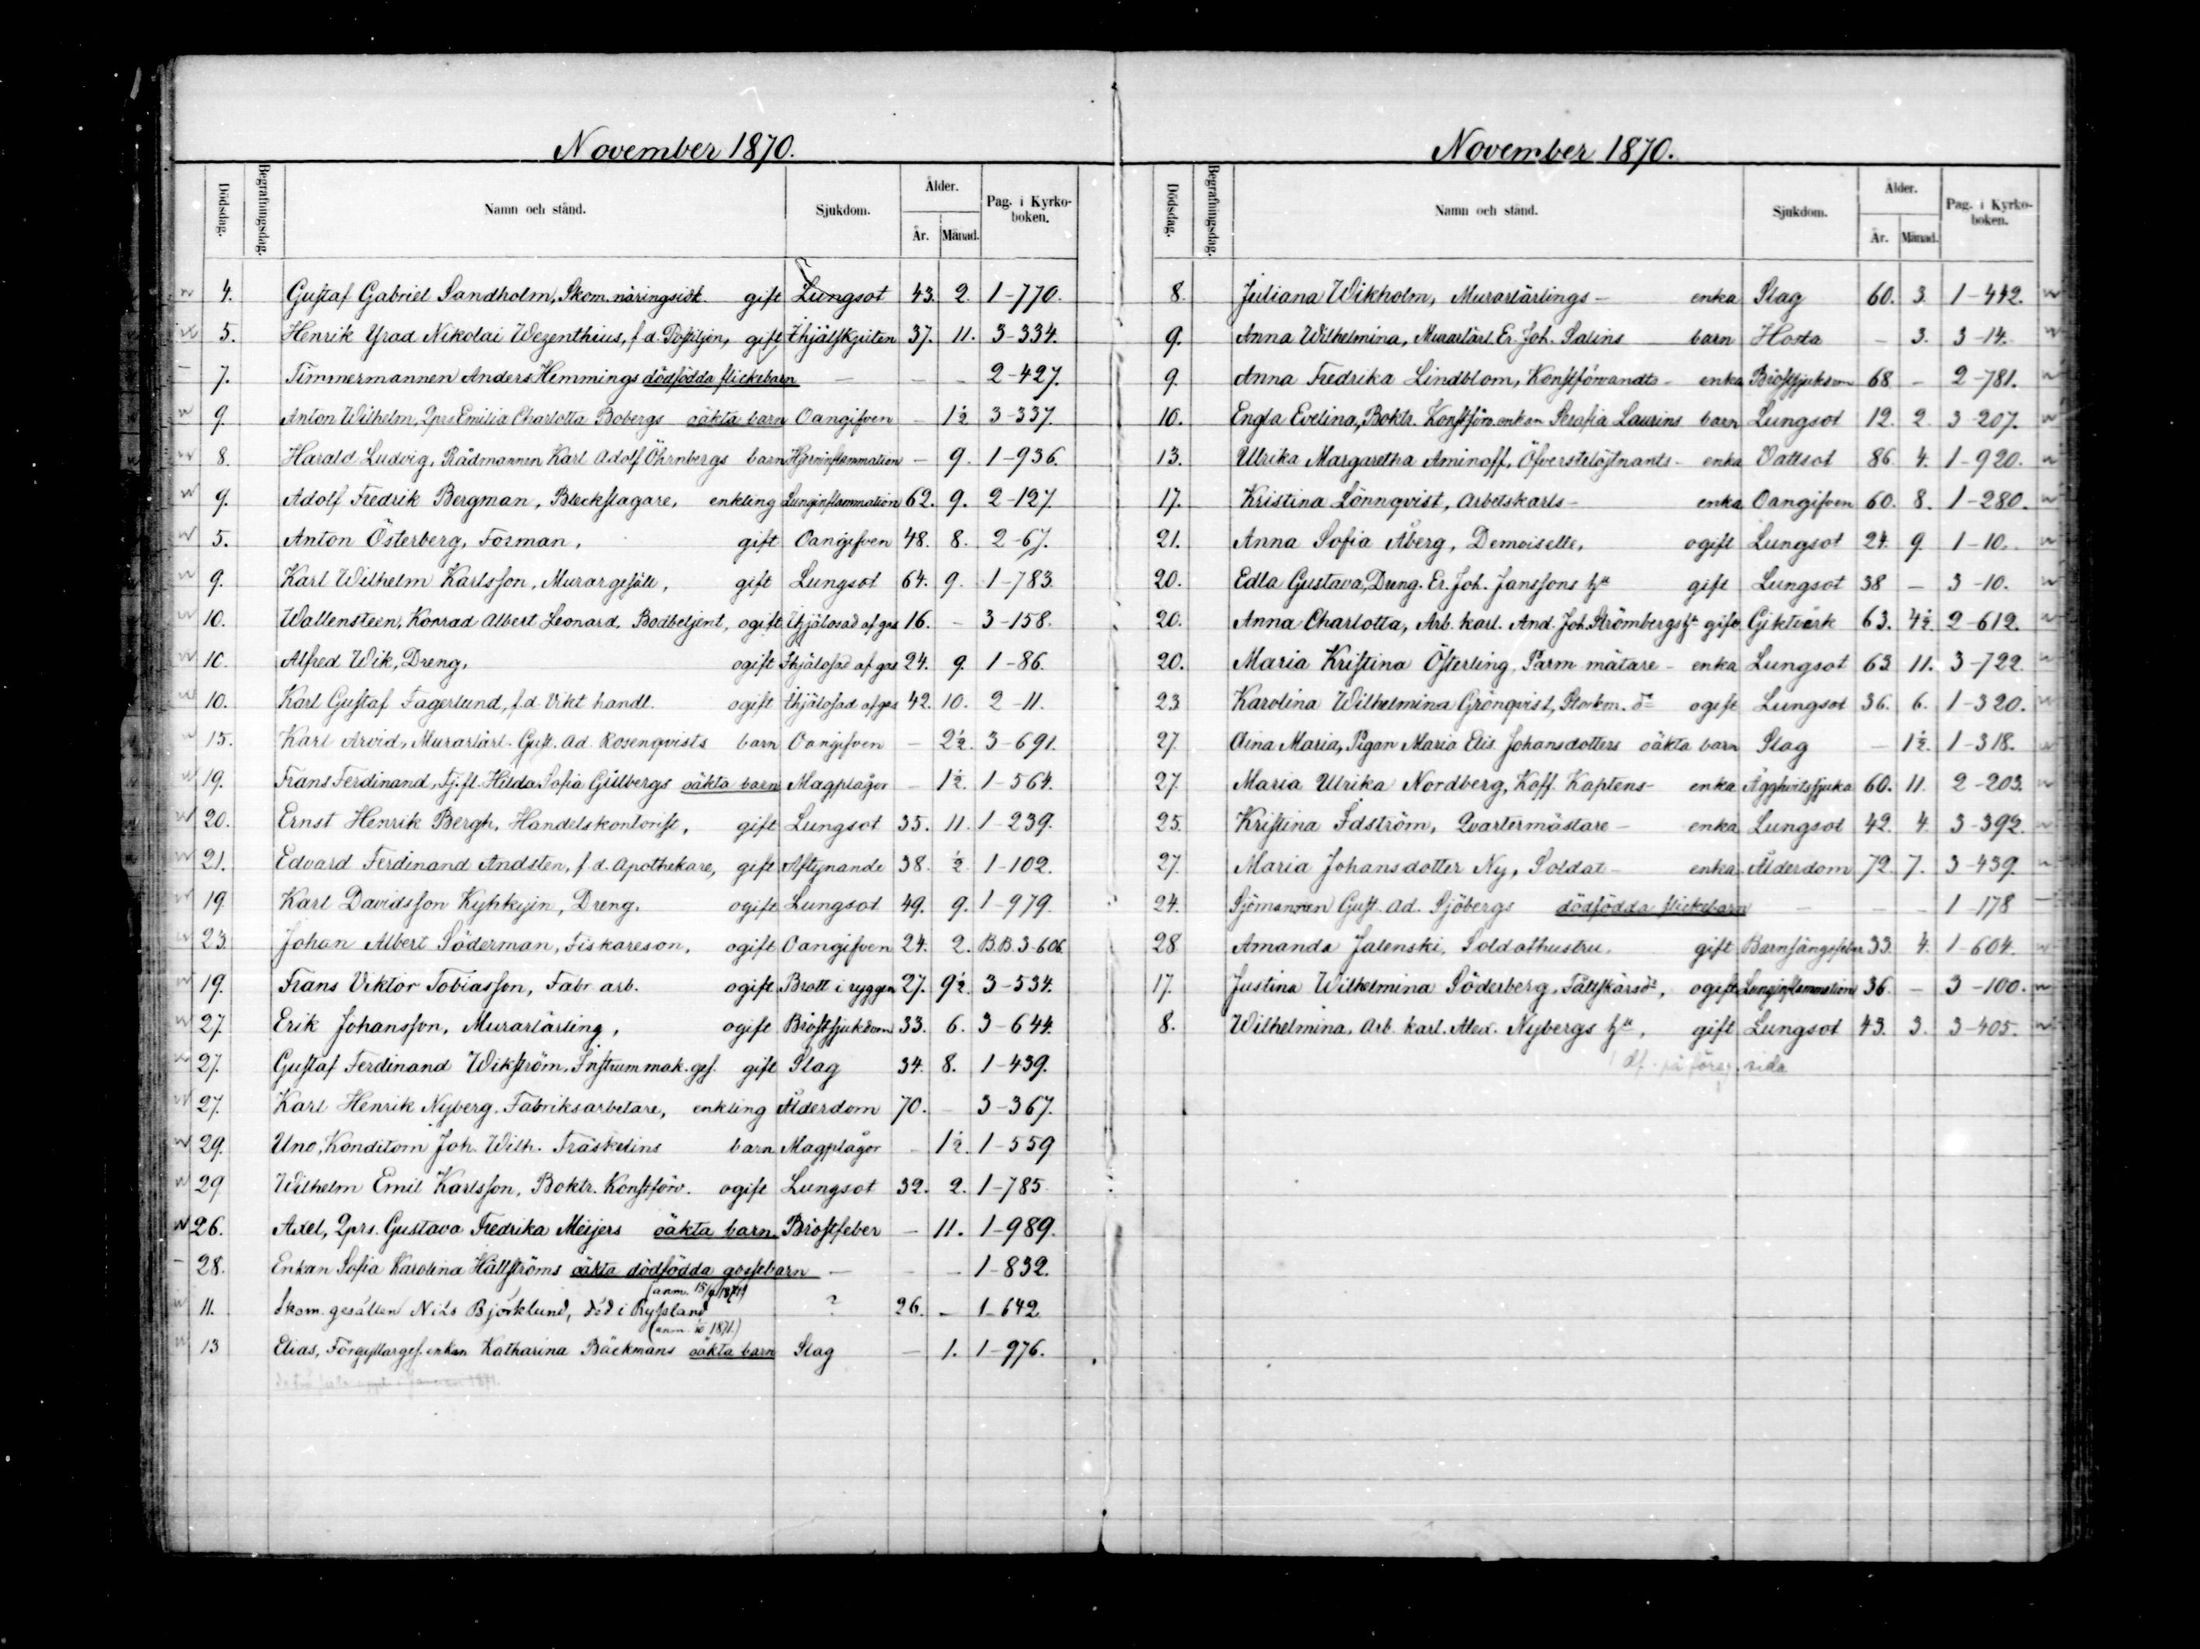 November 1870.
Dödsdag. Begrafningsdag. Namn och stånd. Sjukdom. Ålder. År. Månad. Pag. i Kyrkoboken.
4. Gustaf Gabriel Sandholm, Skom. näringsidk. gift Lungsot 43. 2. 1-770.
5. Henrik Nikolai Wezenthius, f.d. Postiljon, gift Ihjälskjuten 37. 11. 3-334.
7. Timmermannen Anders Hemmings dödfödda flickebarn — — — 2-427.
9. Anton Wilhelm, Qprs Emilia Charlotta Bobergs oäkta barn Oangifven — 1½ 3-337.
8. Harald Ludvig, Rådmannen Karl Adolf Öhrnbergs barn Hjerninflammation — 9. 1-936.
9. Adolf Fredrik Bergman, Bleckslagare, enkling Lunginflammation 62. 9. 2-127.
5. Anton Österberg, Forman, gift Oangifven 48. 8. 2-67.
9. Karl Wilhelm Karlsson, Murargesäll, gift Lungsot 64. 9. 1-783.
10. Wallensteen, Konrad Albert Leonard, Bodbetjent, ogift Ihjälosad af gas 16. — 3-158.
10. Alfred Wik, Dreng, ogift Ihjälosad af gas 24. 9. 1-86.
10. Karl Gustaf Fagerlund, f.d. Vikt. handl. ogift Ihjälosad af gas 42. 10. 2-11.
15. Karl Arvid, Murarlärl. Gust. Ad. Rosenqvists barn Oangifven — 2½. 3-691.
19. Frans Ferdinand, Tj.fl. Hilda Sofia Gillbergs oäkta barn Magplågor — 1½. 1-564.
20. Ernst Henrik Bergh, Handelskontorist, gift Lungsot 35. 11. 1-239.
21. Edvard Ferdinand Andsten, f.d. Apothekare, gift Aftynande 38. ½. 1-102.
19. Karl Davidsson Kyhkyin, Dreng. ogift Lungsot 49. 9. 1-979.
23. Johan Albert Söderman, Fiskareson, ogift Oangifven 24. 2. B.B. 3-606.
19. Frans Viktor Tobiasson, Fabr. arb. ogift Brott i ryggen 27. 9½. 3-534.
27. Erik Johansson, Murarlärling, ogift Bröstsjukdom 33. 6. 3-644.
27. Gustaf Ferdinand Wikström, Instrummak. ges. gift Slag 34. 8. 1-439.
27. Karl Henrik Nyberg, Fabriksarbetare, enkling Ålderdom 70. — 3-367.
29. Uno, Konditorn Joh. Wilh. Fräskelins barn Magplågor — 1½. 1-559
29 Wilhelm Emil Karlsson, Boktr. Konstförv. ogift Lungsot 32. 2. 1-785.
26. Axel, Qprs. Gustava Fredrika Meijers oäkta barn Bröstfeber — 11. 1-989.
28. Enkan Sofia Karolina Hällströms oäkta dödfödda gossebarn — — — 1-832.
(anm. 15/9 1871)
11. Skom. gesällen Nils Björklund, död i Ryssland ? 26. — 1-642
(anm. 1871.)
13 Elias, Förgyllargef. enkan Katharina Bäckmans oäkta barn Slag — 1. 1-976.
November 1870.
Dödsdag. Begrafningsdag. Namn och stånd. Sjukdom. Ålder. År. Månad. Pag. i Kyrkoboken.
8. Juliana Wikholm, Murarlärlings- enka Slag 60. 3. 1-442.
9. Anna Wilhelmina, Murarlärl. Er. Joh. Salins barn Hosta — 3. 3-14.
9. Anna Fredrika Lindblom, Konstförvandts- enka Bröstsjukdom 68 — 2-781.
10. Engla Evelina, Boktr. Konstförv. enkan Serafia Laurins barn Lungsot 12. 2. 3-207.
13. Ulrika Margaretha Aminoff, Öfverstelöjtnants- enka Vattsot 86. 4. 1-920.
17. Kristina Lönnqvist, Arbetskarls- enka Oangifven 60. 8. 1-280.
21. Anna Sofia Åberg, Demoiselle, ogift Lungsot 24. 9. 1-10.
20. Edla Gustava, Dreng. Er. Joh. Janssons h:u gift Lungsot 38 — 3-10.
20. Anna Charlotta, Arb. karl. And. Joh. Strömbergs h:u gift Giktvärk 63. 4½. 2-612.
20. Maria Kristina Österling, Parm mätare- enka Lungsot 63. 11. 3-722.
23 Karolina Wilhelmina Grönqvist, Stockm. d:r ogift Lungsot 36. 6. 1-320.
27. Aina Maria, Pigan Maria Elis. Johansdotters oäkta barn Slag — 1½. 1-318.
27. Maria Ulrika Nordberg, Koff. Kaptens- enka Ägghvitssjuka 60. 11. 2-203.
25. Kristina Idström, Qvartermästare- enka Lungsot 42. 4. 3-392.
27. Maria Johansdotter Ny, Soldat- enka Ålderdom 72. 7. 3-439.
24. Sjömannen Gust. Ad. Sjöbergs dödfödda flickebarn — — — 1-178
28 Amanda Jalenski, Soldathustru, gift Barnsängsfeber 33. 4. 1-604.
17. Justina Wilhelmina Söderberg, Fältskärsd:r, ogift Lunginflammation 36. — 3-100.
8. Wilhelmina, Arb. karl. Alex. Nybergs h:u, gift Lungsot 43. 3. 3-405.
på föreg. sida